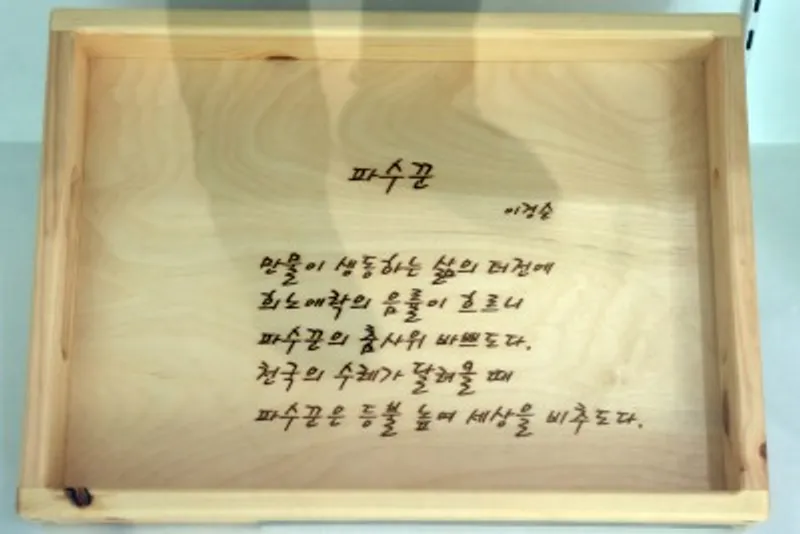 파수꾼
이정순
만물이 생동하는 삶의 터전에
희노애락의 음률이 흐르니
파수꾼의 춤사위 바쁘도다.
천국의 수레가 달려올 때
파수꾼은 등불 높여 세상을 비추도다.